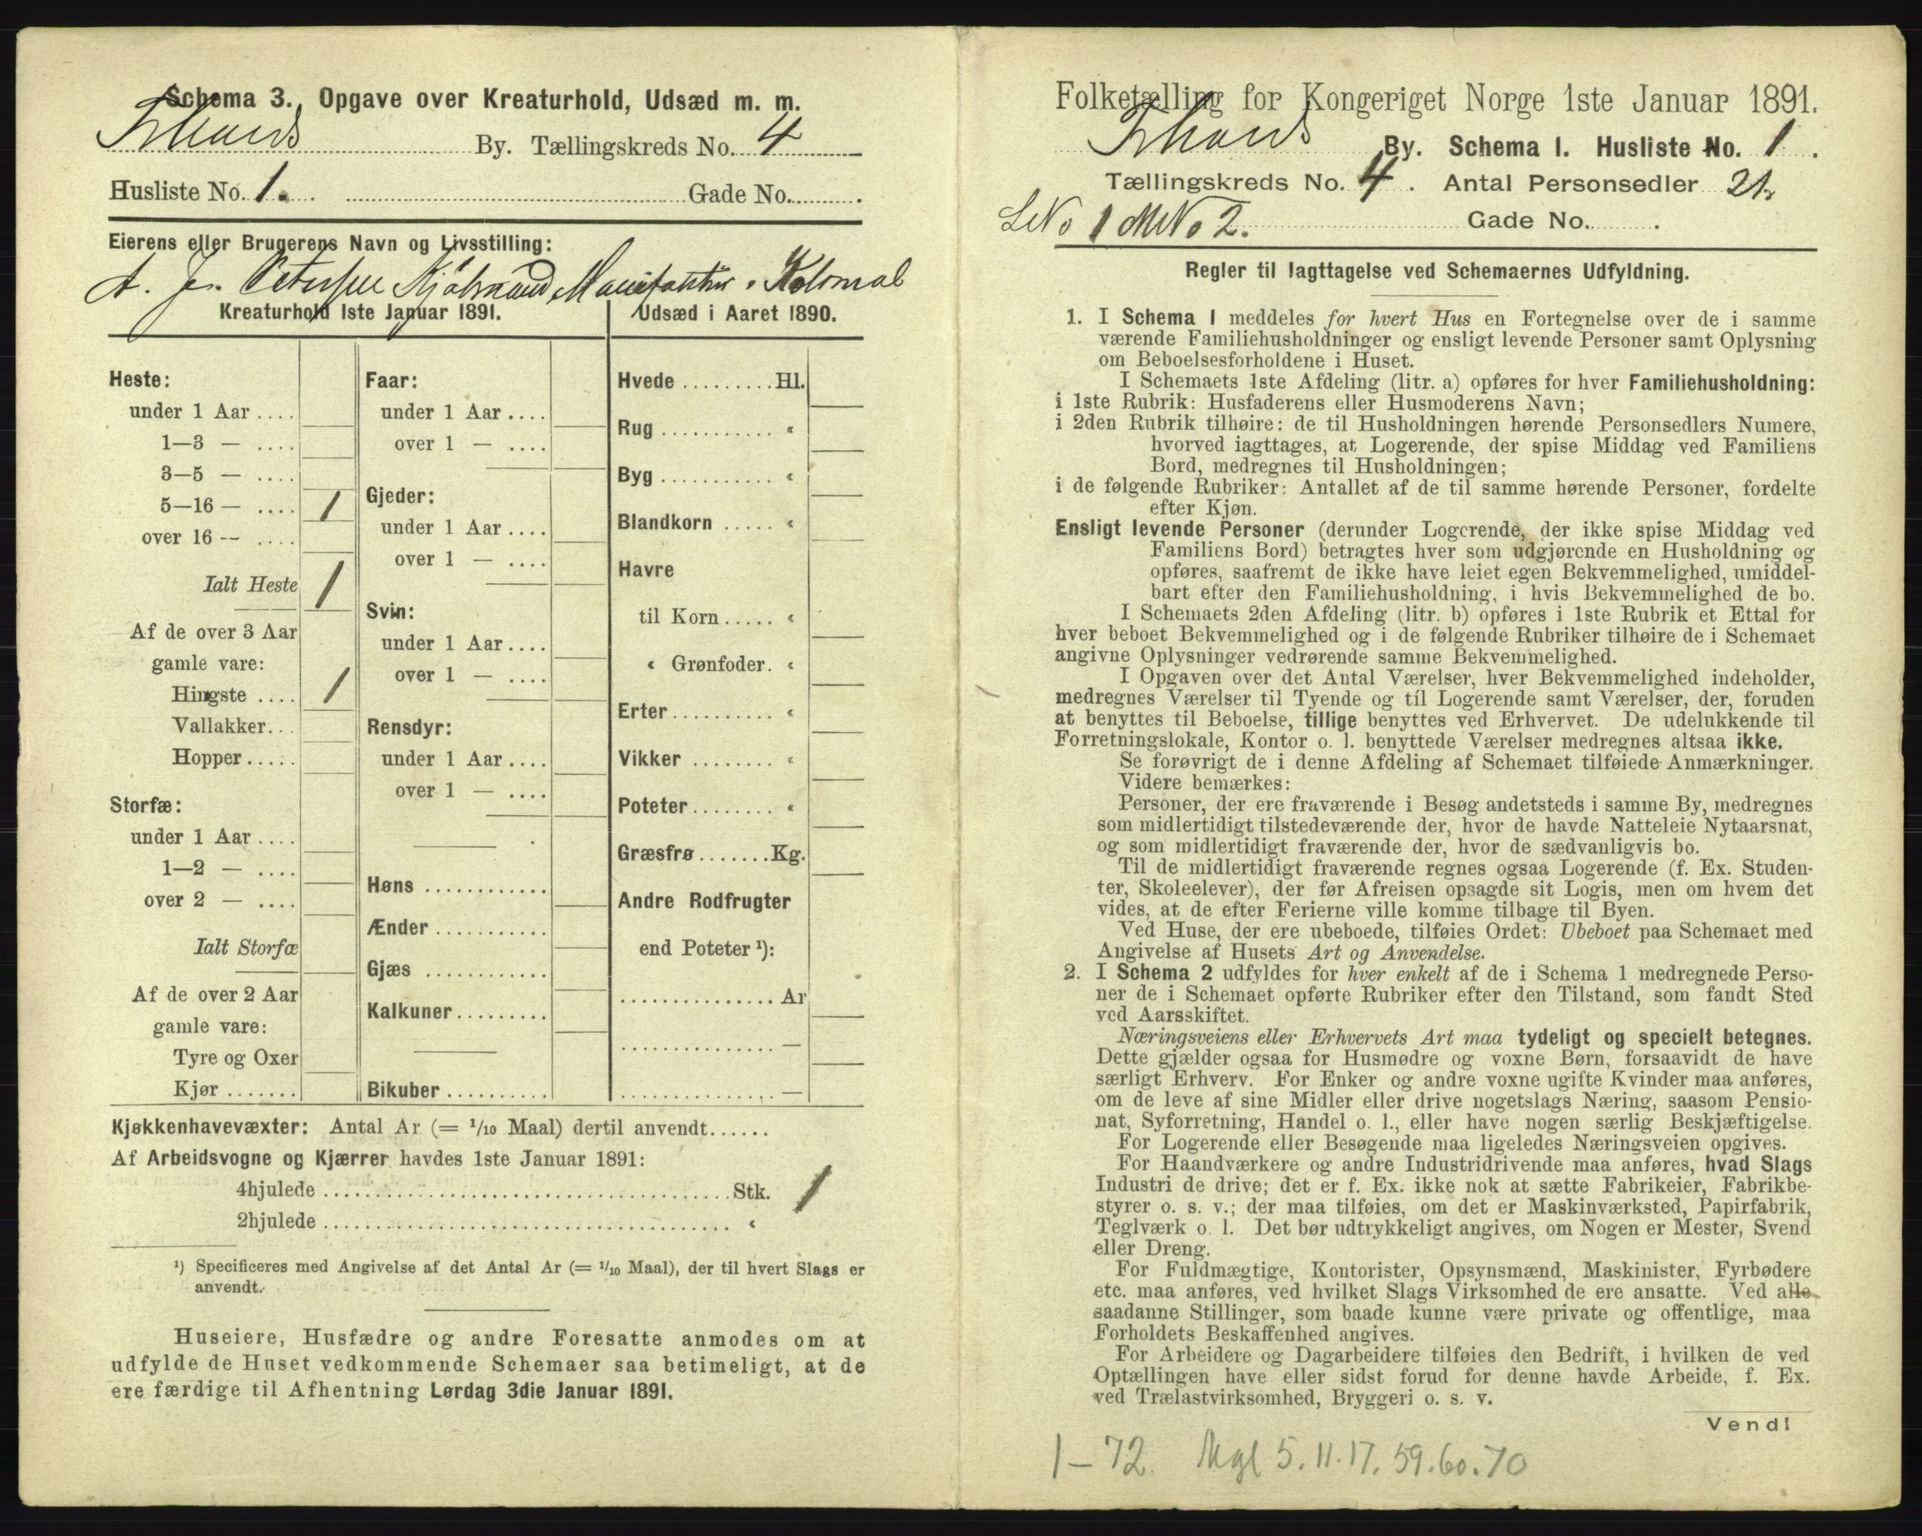 Schema 3. Opgave over Kreaturhold, Udsæd m. m.
By. Tællingskreds No. 4
Husliste No. 1. Gade No.
Eierens eller Brugerens Navn og Livsstilling:
A. J. Petersen Kjøbmand Manifaktur Kolonial
Kreaturhold 1ste Januar 1891.
Heste:
under 1 Aar
1—3 —
3—5 —
5—16 — 1
over 16 —
Ialt Heste 1
Af de over 3 Aar
gamle vare:
Hingste 1
Vallakker
Hopper
Storfæ:
under 1 Aar
1—2 —
over 2 —
Ialt Storfæ
Af de over 2 Aar
gamle vare:
Tyre og Oxer
Kjør
Faar:
under 1 Aar
over 1 —
Gjeder:
under 1 Aar
over 1 —
Svin:
under 1 Aar
over 1 —
Rensdyr:
under 1 Aar
over 1 —
Høns
Ænder
Gjæs
Kalkuner
Bikuber
Udsæd i Aaret 1890.
Hvede Hl.
Rug «
Byg «
Blandkorn «
Havre
til Korn «
« Grønfoder. «
Erter «
Vikker «
Poteter «
Græsfrø Kg.
Andre Rodfrugter
end Poteter ¹):
Ar
—
—
Kjøkkenhavevæxter: Antal Ar (= 1/10 Maal) dertil anvendt
Af Arbeidsvogne og Kjærrer havdes 1ste Januar 1891:
4hjulede Stk. 1
2hjulede «
¹) Specificeres med Angivelse af det Antal Ar (= 1/10 Maal), der til hvert Slags er
anvendt.
Huseiere, Husfædre og andre Foresatte anmodes om at
udfylde de Huset vedkommende Schemaer saa betimeligt, at de
ere færdige til Afhentning Lørdag 3die Januar 1891.
Folketælling for Kongeriget Norge 1ste Januar 1891.
By. Schema I. Husliste No. 1.
Tællingskreds No. 4. Antal Personsedler 21.
LNo 1 MNo 2. Gade No.
Regler til Iagttagelse ved Schemaernes Udfyldning.
1. I Schema I meddeles for hvert Hus en Fortegnelse over de i samme
værende Familiehusholdninger og ensligt levende Personer samt Oplysning
om Beboelsesforholdene i Huset.
I Schemaets 1ste Afdeling (litr. a) opføres for hver Familiehusholdning:
i 1ste Rubrik: Husfaderens eller Husmoderens Navn;
i 2den Rubrik tilhøire: de til Husholdningen hørende Personsedlers Numere,
hvorved iagttages, at Logerende, der spise Middag ved Familiens
Bord, medregnes til Husholdningen;
i de følgende Rubriker: Antallet af de til samme hørende Personer, fordelte
efter Kjøn.
Ensligt levende Personer (derunder Logerende, der ikke spise Middag ved
Familiens Bord) betragtes hver som udgjørende en Husholdning og
opføres, saafremt de ikke have leiet egen Bekvemmelighed, umiddel-
bart efter den Familiehusholdning, i hvis Bekvemmelighed de bo.
I Schemaets 2den Afdeling (litr. b) opføres i 1ste Rubrik et Ettal for
hver beboet Bekvemmelighed og i de følgende Rubriker tilhøire de i Schemaet
angivne Oplysninger vedrørende samme Bekvemmelighed.
I Opgaven over det Antal Værelser, hver Bekvemmelighed indeholder,
medregnes Værelser til Tyende og til Logerende samt Værelser, der, foruden
at benyttes til Beboelse, tillige benyttes ved Erhvervet. De udelukkende til
Forretningslokale, Kontor o. l. benyttede Værelser medregnes altsaa ikke.
Se forøvrigt de i denne Afdeling af Schemaet tilføiede Anmærkninger.
Videre bemærkes:
Personer, der ere fraværende i Besøg andetsteds i samme By, medregnes
som midlertidigt tilstedeværende der, hvor de havde Natteleie Nytaarsnat,
og som midlertidigt fraværende der, hvor de sædvanligvis bo.
Til de midlertidigt fraværende regnes ogsaa Logerende (f. Ex. Studen-
ter, Skoleelever), der før Afreisen opsagde sit Logis, men om hvem det
vides, at de efter Ferierne ville komme tilbage til Byen.
Ved Huse, der ere ubeboede, tilføies Ordet: Ubeboet paa Schemaet med
Angivelse af Husets Art og Anvendelse.
2. I Schema 2 udfyldes for hver enkelt af de i Schema 1 medregnede Perso-
ner de i Schemaet opførte Rubriker efter den Tilstand, som fandt Sted
ved Aarsskiftet.
Næringsveiens eller Erhvervets Art maa tydeligt og specielt betegnes.
Dette gjælder ogsaa for Husmødre og voxne Børn, forsaavidt de have
særligt Erhverv. For Enker og andre voxne ugifte Kvinder maa anføres,
om de leve af sine Midler eller drive nogetslags Næring, saasom Pensio-
nat, Syforretning, Handel o. l., eller have nogen særlig Beskjæftigelse.
For Logerende eller Besøgende maa ligeledes Næringsveien opgives.
For Haandværkere og andre Industridrivende maa anføres, hvad Slags
Industri de drive; det er f. Ex. ikke nok at sætte Fabrikeier, Fabrikbe-
styrer o. s. v.; der maa tilføies, om det er Maskinværksted, Papirfabrik,
Teglværk o. l. Det bør udtrykkeligt angives, om Nogen er Mester, Svend
eller Dreng.
For Fuldmægtige, Kontorister, Opsynsmænd, Maskinister, Fyrbødere
etc. maa anføres, ved hvilket Slags Virksomhed de ere ansatte. Ved alle
saadanne Stillinger, som baade kunne være private og offentlige, maa
Forholdets Beskaffenhed angives.
For Arbeidere og Dagarbeidere tilføies den Bedrift, i hvilken de ved
Optællingen have eller sidst forud for denne havde Arbeide, f. Ex.
ved Trælastvirksomhed, Bryggeri o. s. v.
Vend!
1—72. Mgl 5.11.17.59.60.70